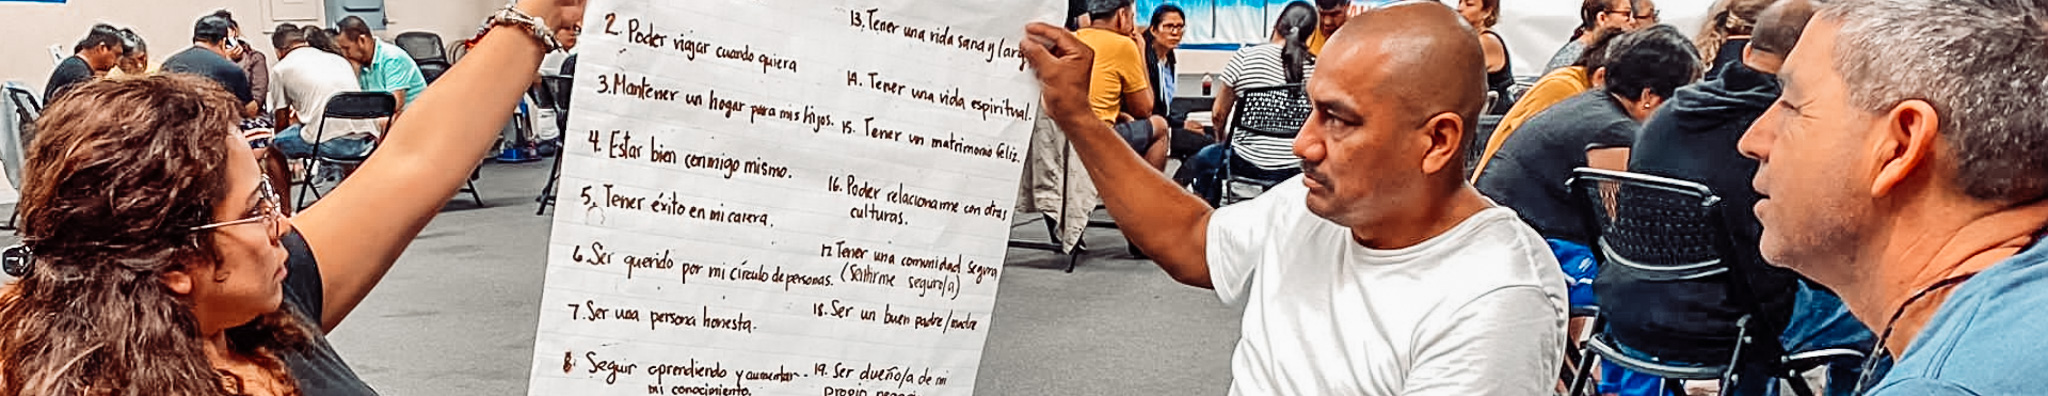 2. Poder viajar cuando quiera
3. Mantener un hogar para mis hijos.
4. Estar bien conmigo mismo.
5. Tener éxito en mi carera.
6. Ser querido por mi círculo de personas.
7. Ser una persona honesta.
8. Seguir aprendiendo y aumentar
mi conocimiento.
13. Tener una vida sana y
14. Tener una vida espiritual.
15. Tener un matrimonio feliz.
16. Poder relacionarme con otras
culturas.
17. Tener una comunidad segura
(Sentirme seguro/a)
18. Ser un buen padre/madre
19. Ser dueño/a de mi
propio